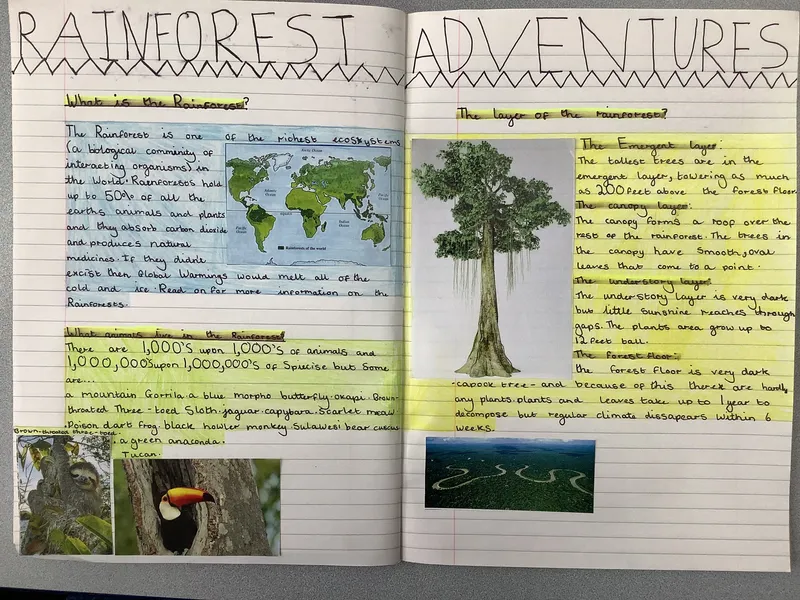 RAINFOREST
What is the Rainforest?
The Rainforest is one of the richest ecosystems
(a biological comminity of
interacting organisms) in
the World. Rainforests hold
up to 50% of all the
earths animals and plants
and they absorb carbon dioxide
and produces natural
medicines. If they didn't
excist then Global Warmings would melt all of the
cold and ice. Read on for more information on the
Rainforests.
Arctic Ocean
Atlantic Ocean
Pacific Ocean
Equator
Indian Ocean
Pacific Ocean
Rainforests of the world
What animals live in the Rainforest?
There are 1,000's upon 1,000's of animals and
1,000,000's upon 1,000,000's of Specise but Some
are...
a mountain Gorrila. a blue morpho butterfly. okapi. Brown-
throated Three-toed Sloth. jaguar. capybara. Scarlet macaw.
Poison dart frog. black howler monkey. Sulawesi bear cuscus
a green anaconda.
Brown-throated three-toed.
Tucan.
ADVENTURES
The layer of the rainforest?
The Emergent layer:
The tallest trees are in the
emergent layer, towering as much
as 200 feet above the forest floor.
The canopy layer:
The canopy forms a roof over the
rest of the rainforest. The trees in
the canopy have smooth, oval
leaves that come to a point.
The understory layer:
The understory layer is very dark
but little sunshine reaches through
gaps. The plants area grow up to
12 feet ball.
The Forest floor:
the forest floor is very dark
-capock tree- and because of this there are hardly
any plants. plants and leaves take up to 1 year to
decompose but regular climate dissapears within 6
weeks.